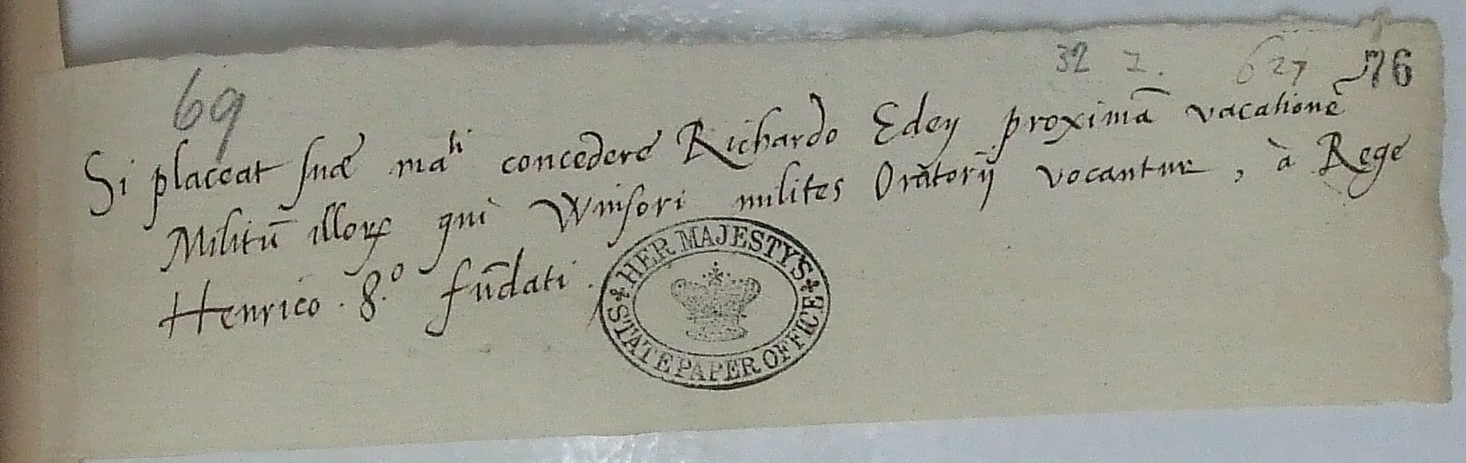 69
32 2. 627 76
Si placeat suae ma^ti concedere Richardo Edey proximā vacationē
Militū illorꝝ qui Winsori milites Oratorij vocantur, à Rege
Henrico . 8.° fūdati .
HER MAJESTY'S
STATE PAPER OFFICE